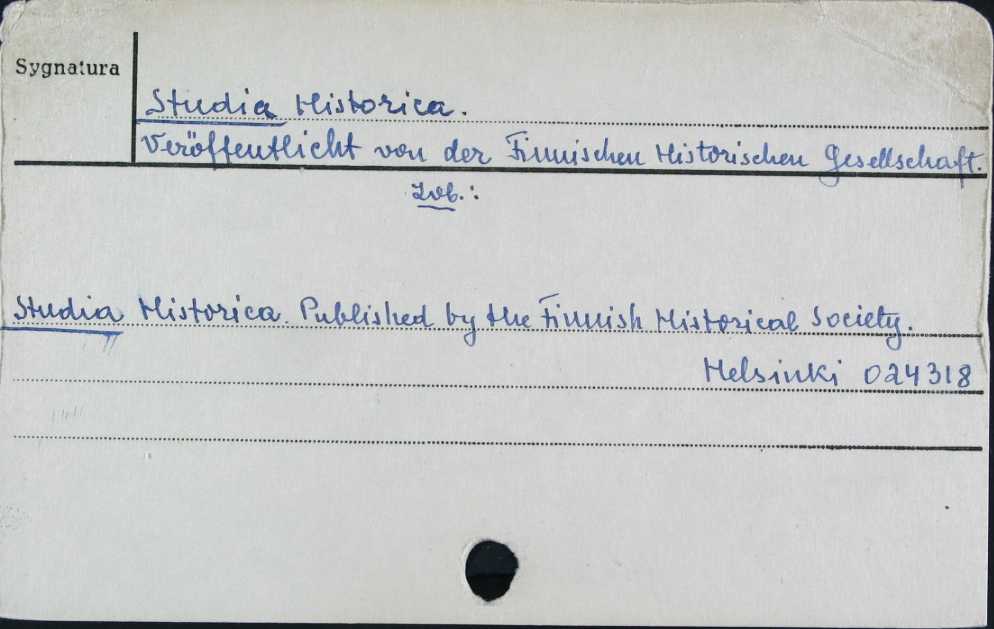 Sygnatura
Studia Historica.
Veröffentlicht von der Finnischen Historischen Gesellschaft.
Zob.:
Studia Historica. Published by the Finnish Historical Society.
Helsinki 024318